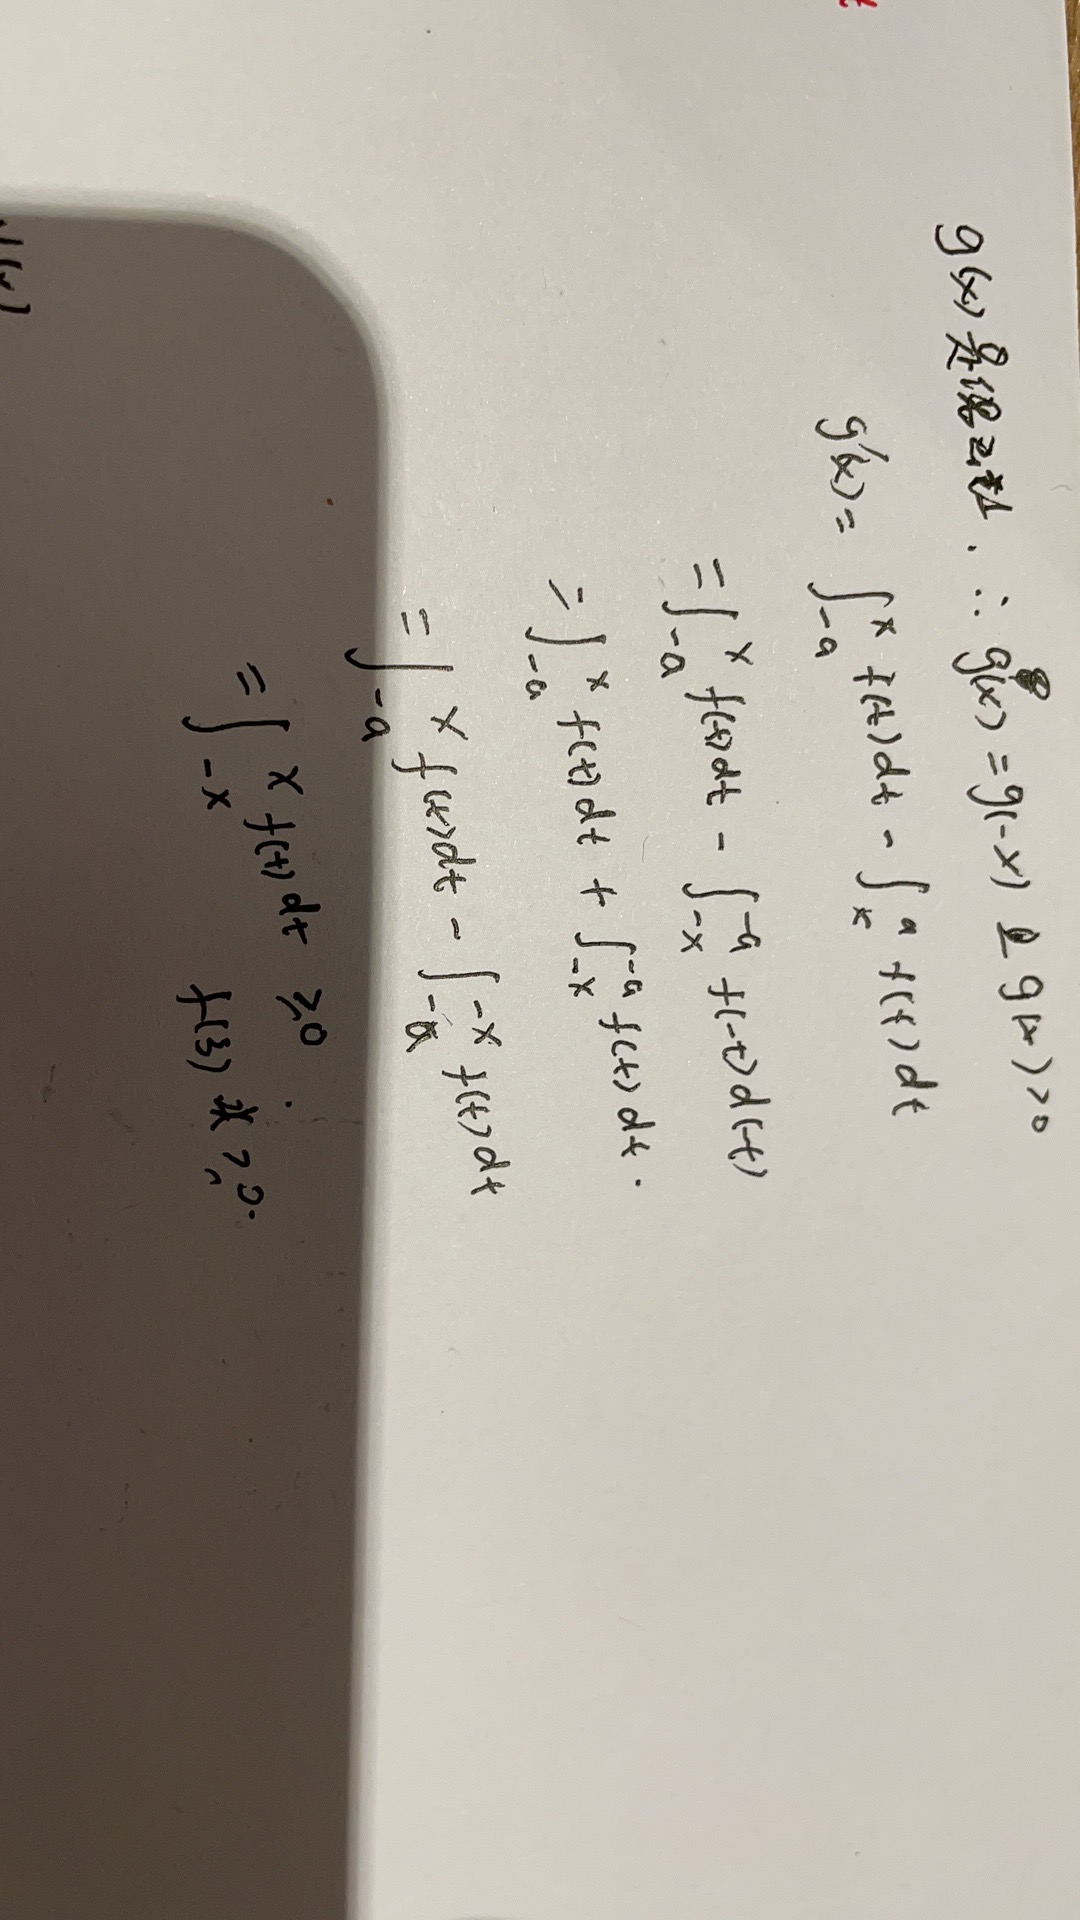 g(x)是偶函数. ∴ g(x) = g(-x) 且 g(x) >0
g'(x) = ∫_{-a}^{x} f(t)dt - ∫_{x}^{a} f(t)dt
= ∫_{-a}^{x} f(t)dt - ∫_{-x}^{-a} f(-t)d(-t)
= ∫_{-a}^{x} f(t)dt + ∫_{-x}^{-a} f(t)dt.
= ∫_{-a}^{x} f(t)dt - ∫_{-a}^{-x} f(t)dt
= ∫_{-x}^{x} f(t)dt ≥0.
f(3)